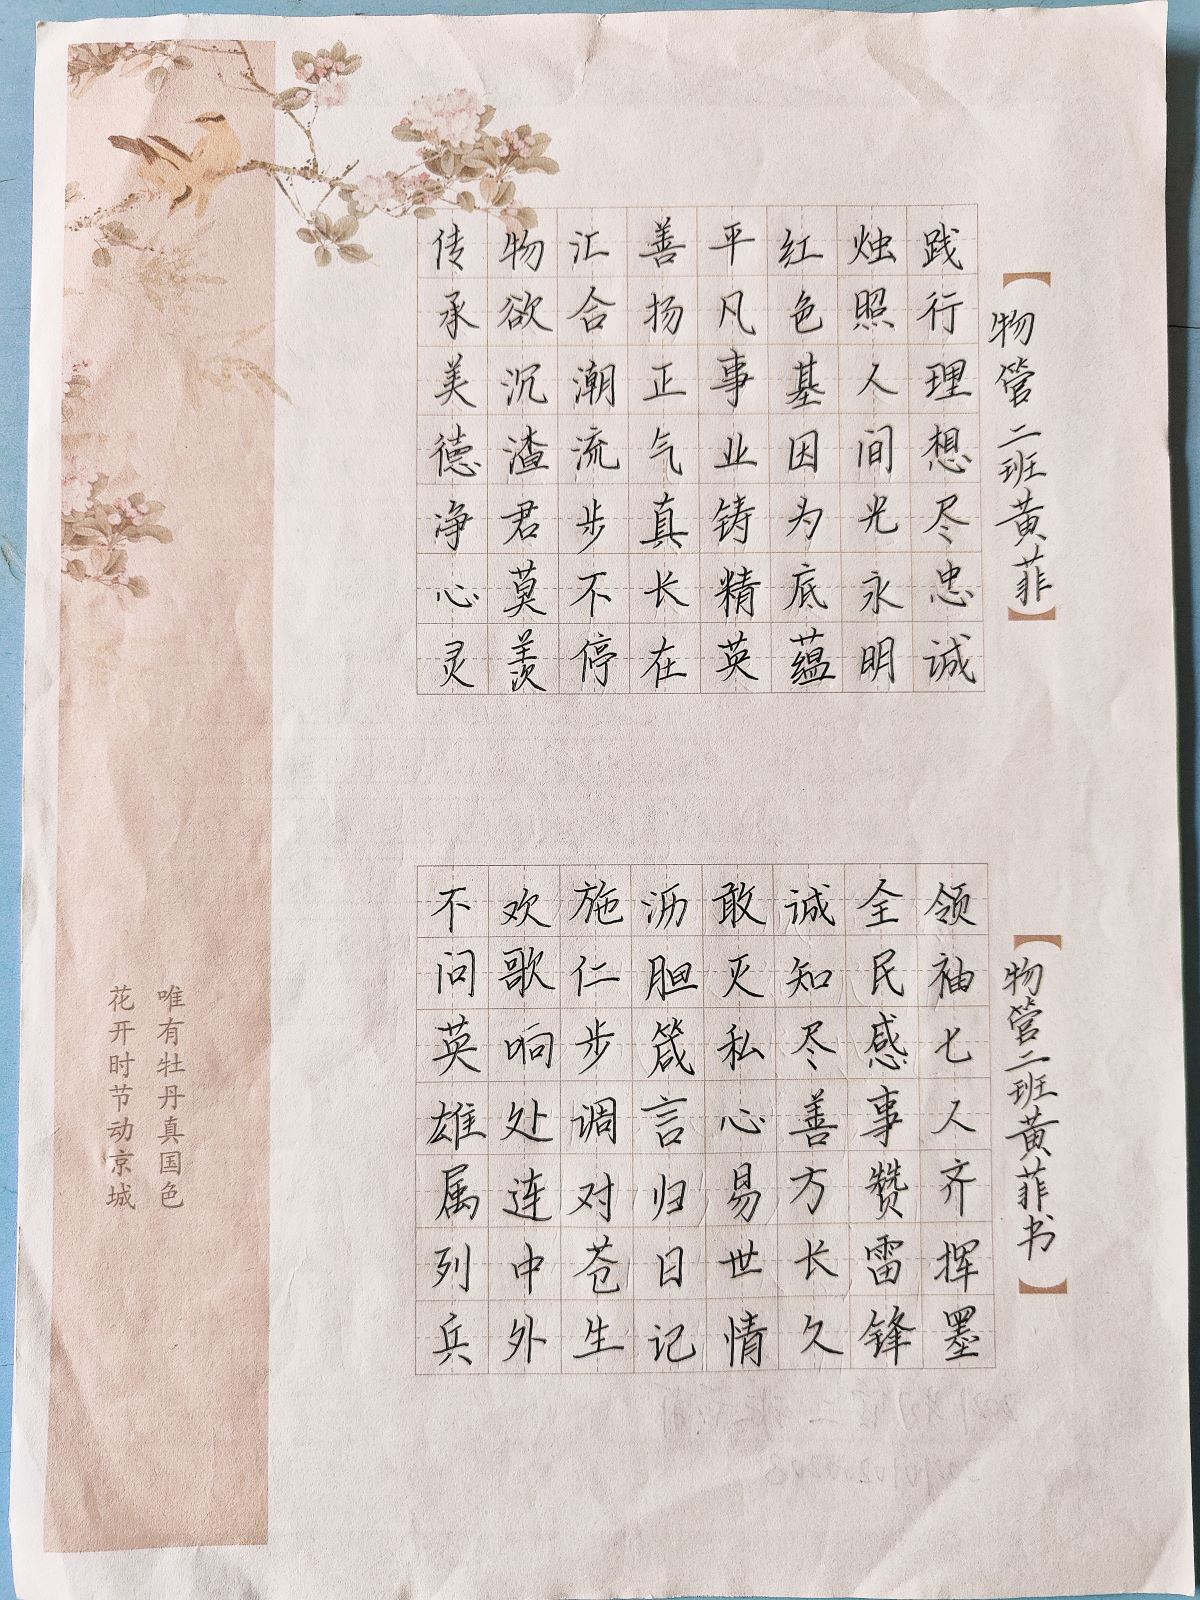 【物管二班黄菲】
践行理想尽忠诚
烛照人间光永明
红色基因为底蕴
平凡事业铸精英
善扬正气真长在
汇合潮流步不停
物欲沉渣君莫羡
传承美德净心灵
【物管二班黄菲书】
领袖七人齐挥墨
全民感事赞雷锋
诚知尽善方长久
敢灭私心易世情
沥胆箴言归日记
施仁步调对苍生
欢歌响处连中外
不问英雄属列兵
唯有牡丹真国色
花开时节动京城